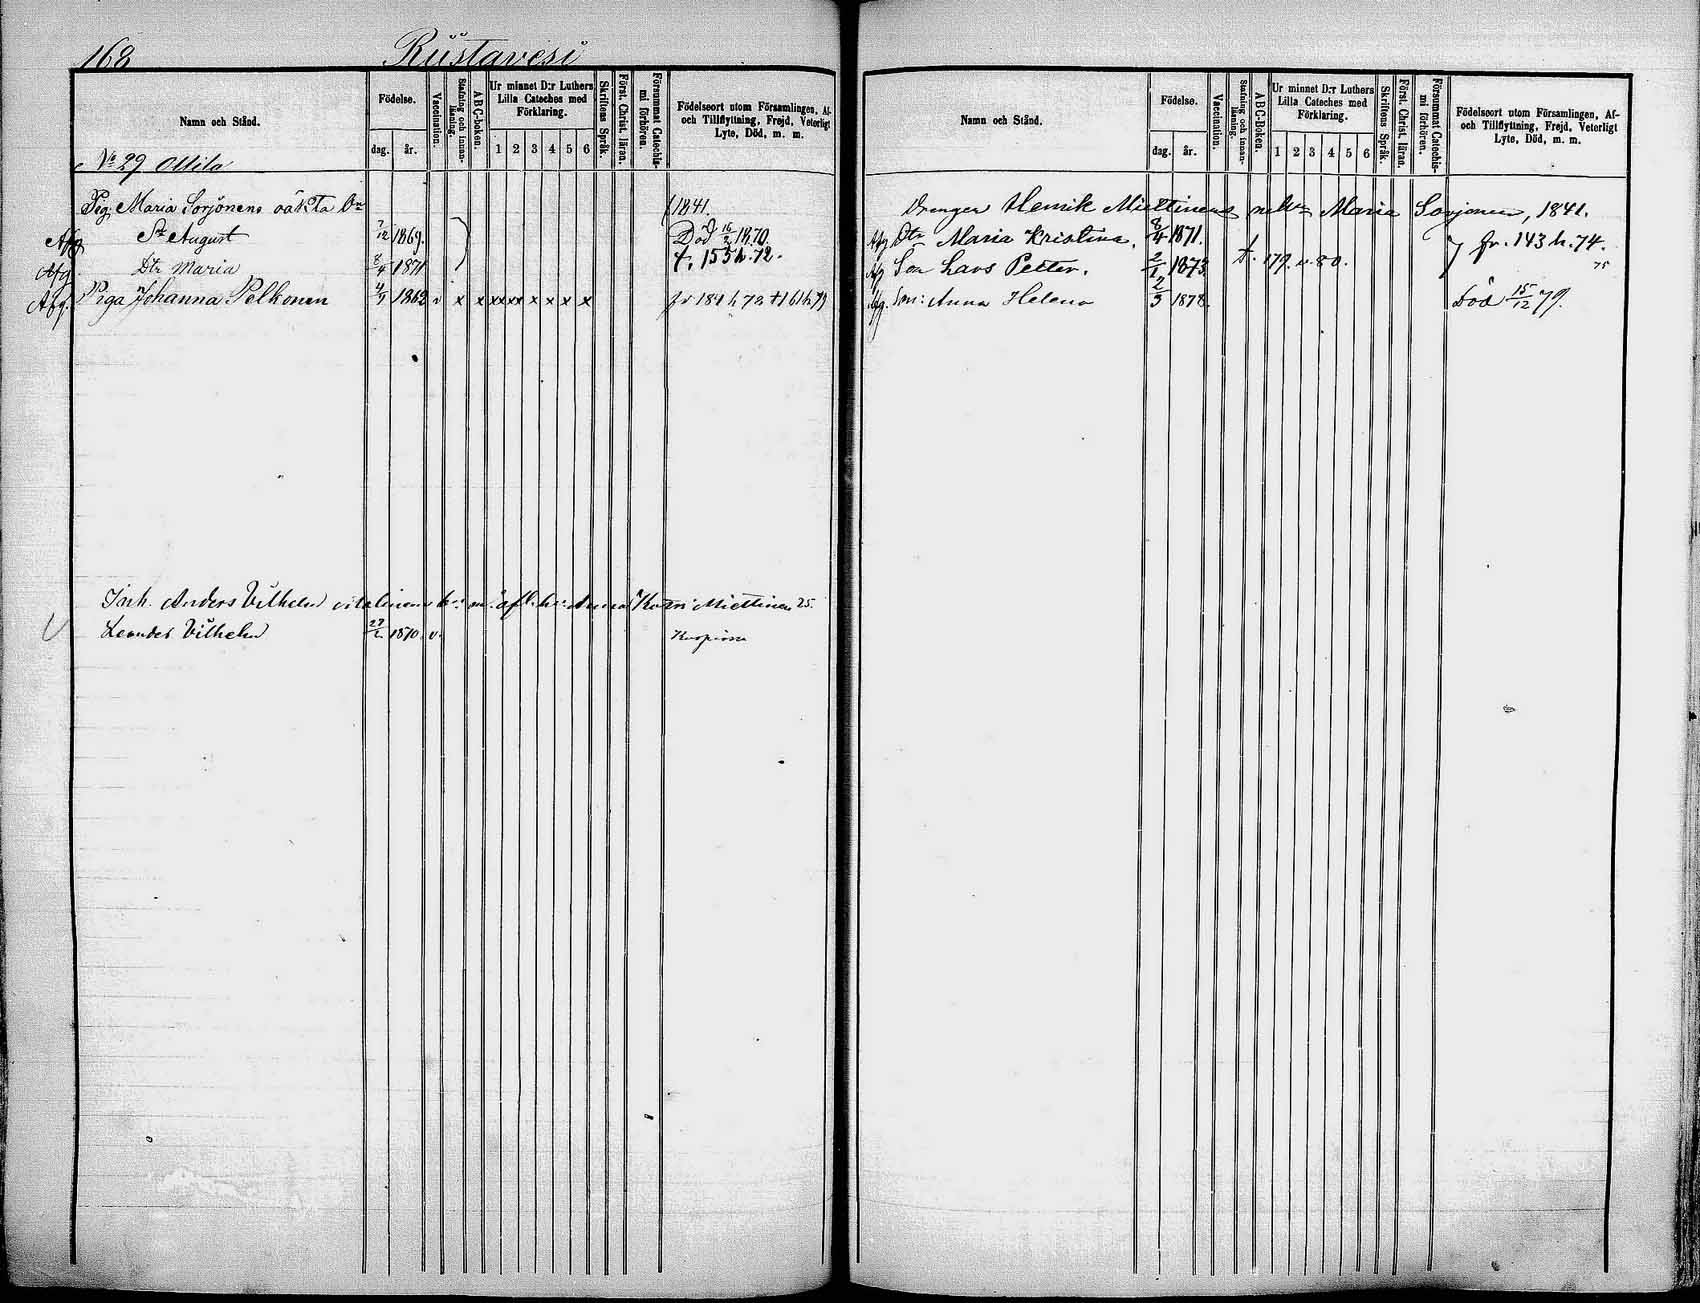 168 Riistavesi
Namn och Stånd.
Födelse.
dag. år.
Vaccination.
Stafning och innanläsning.
ABC-boken.
Ur minnet D:r Luthers Lilla Cateches med Förklaring.
1 2 3 4 5 6
Skriftens Språk.
Först. Christ. läran.
Försummat Catechismi förhören.
Födelseort utom Församlingen, Af- och Tillflyttning, Frejd, Veterligt Lyte, Död, m. m.
No 29 Ollila
Pig. Maria Sorjonens oäkta Bn 1841.
Afg. Sn August 7/12 1869. Död 16/2 1870.
Afg. Dtr Maria 8/4 1871 t. 155 h. 72.
Afg. Piga Johanna Pelkonen 4/5 1862 v x x xxxx x x x x fr 181 h 78 t 161 h 79
Inh. Anders Vilhelm hu: Anna Miettinen 25.
Leander Vilhelm 27/2 1870. v. Kuopiossa
Namn och Stånd.
Födelse.
dag. år.
Vaccination.
Stafning och innanläsning.
ABC-boken.
Ur minnet D:r Luthers Lilla Cateches med Förklaring.
1 2 3 4 5 6
Skriftens Språk.
Först. Christ. läran.
Försummat Catechismi förhören.
Födelseort utom Församlingen, Af- och Tillflyttning, Frejd, Veterligt Lyte, Död, m. m.
Drengen Henrik Miettinens Maria Sorjonen, 1841.
Afg Dtr Maria Kristina. 8/4 1871. fr. 143 h. 74.
Afg Son Lars Petter. 2/1 1873 t. 179. 80. 75
Afg. Anna Helena 2/3 1878. Död 15/12 79.